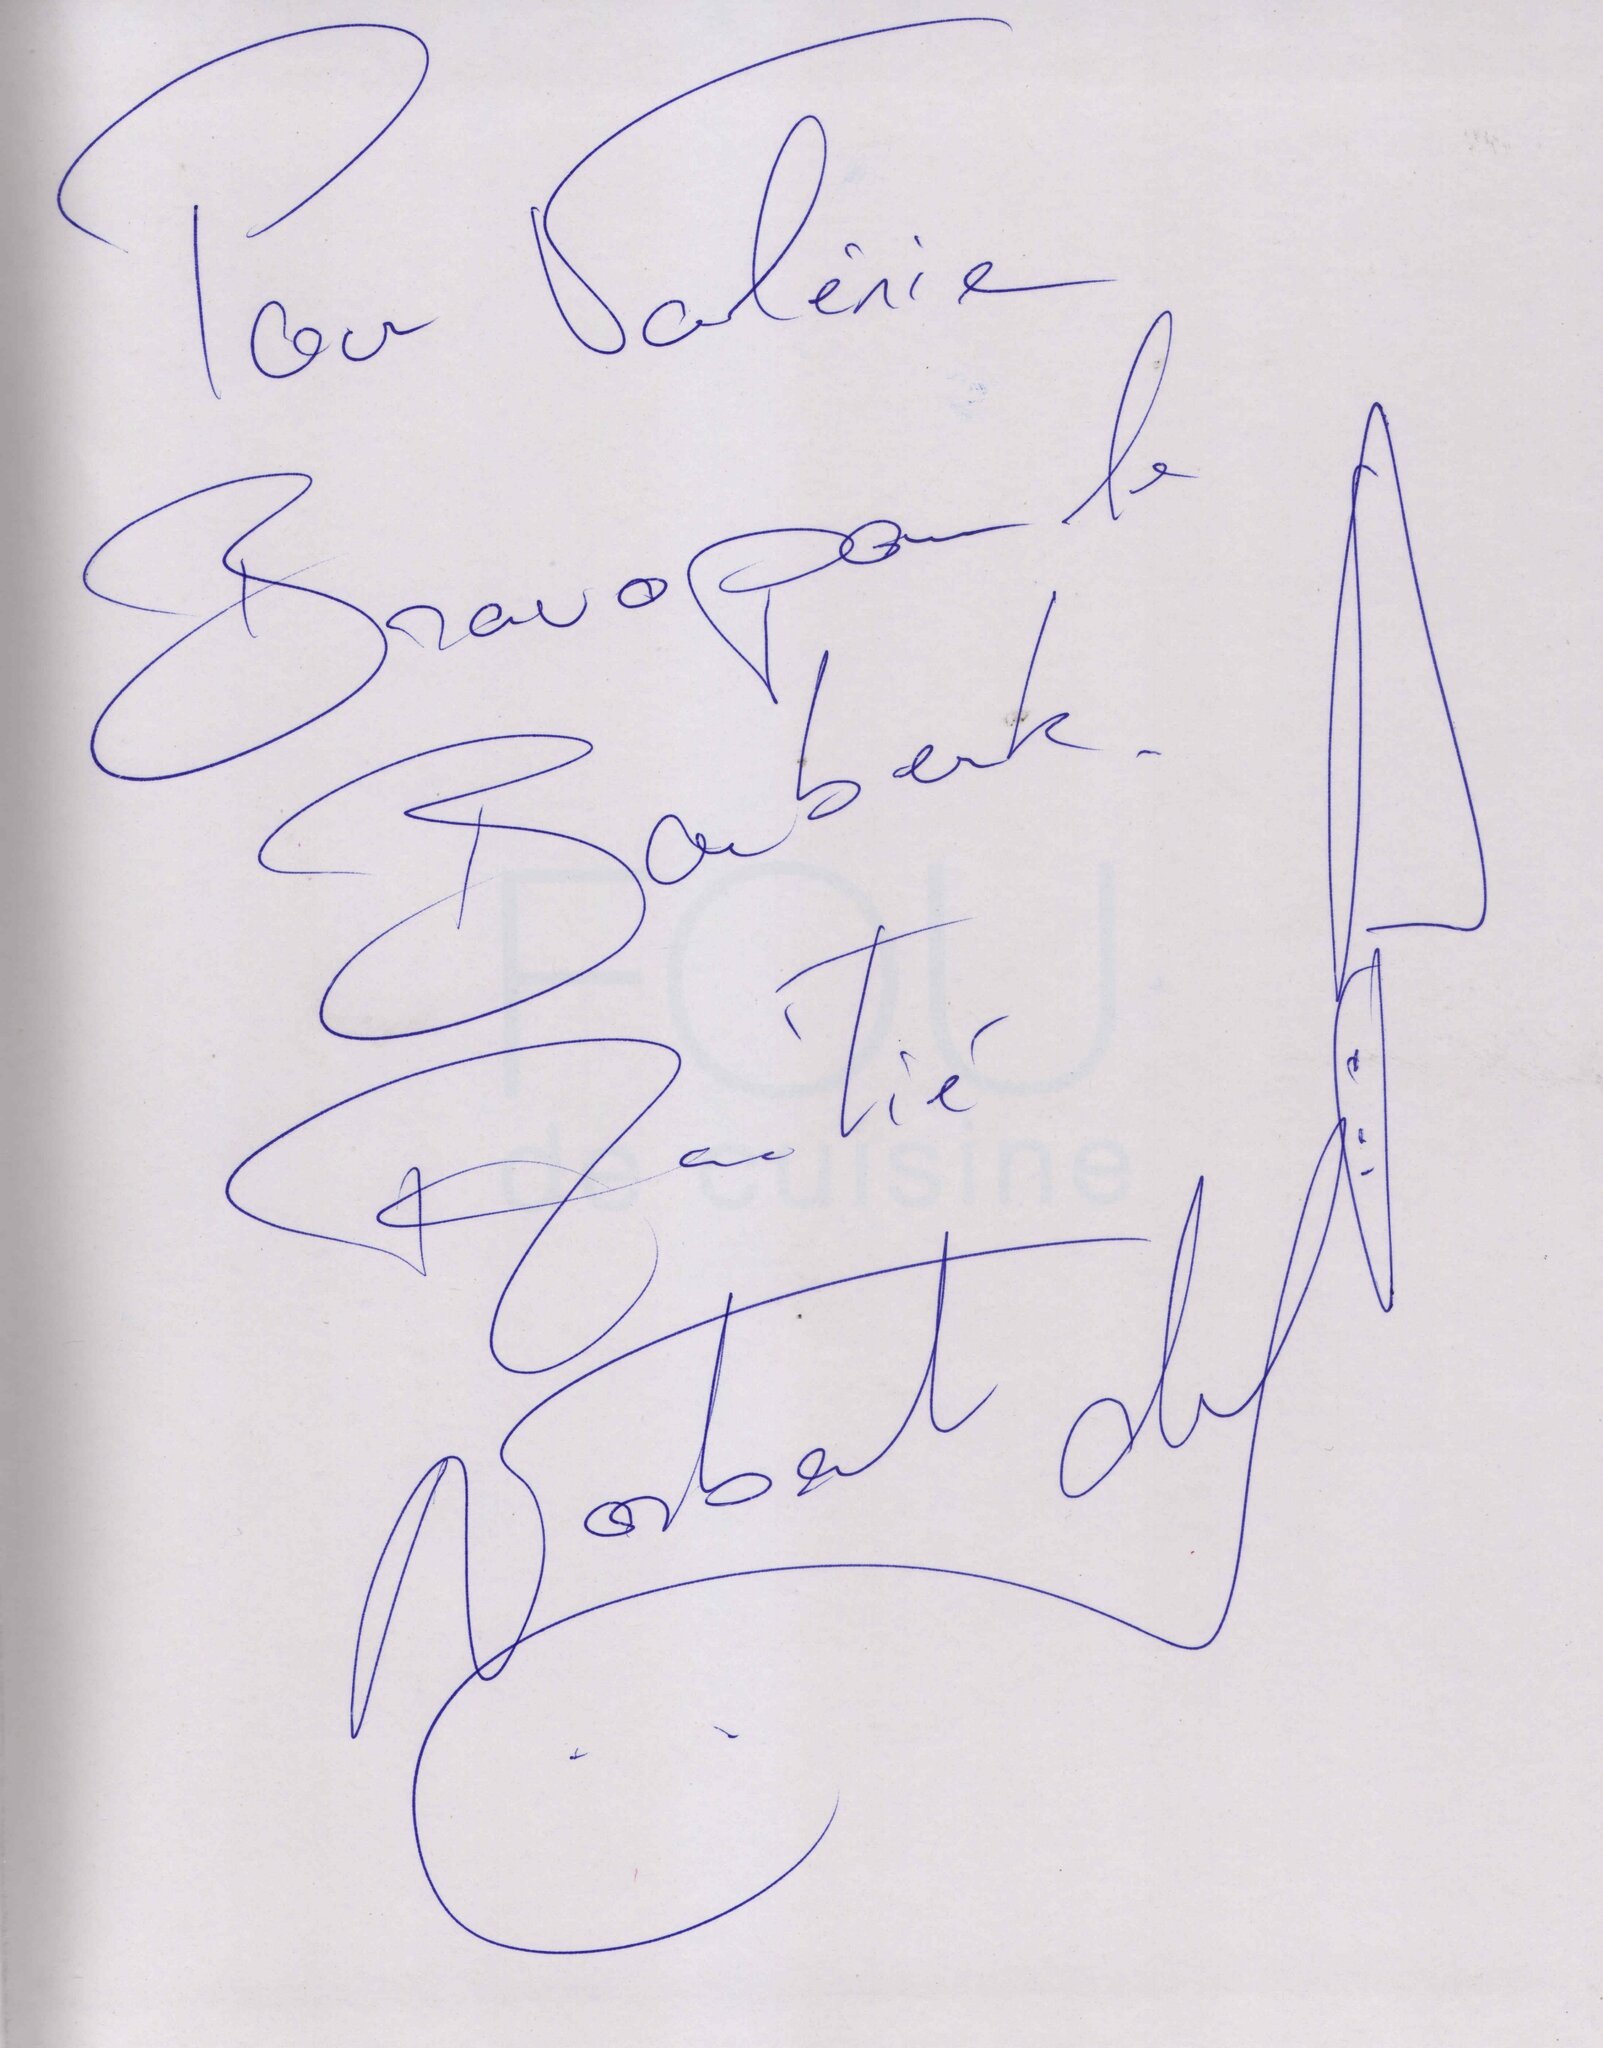 Pour Valérie
Bravo pour le
Barbeuk.
Amitié
Norbert
FOU
de cuisine